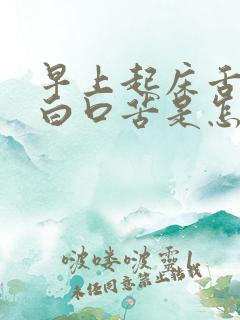 早上起床舌
白口苦是怎
啵喽啵靈1
未经同意禁止转载